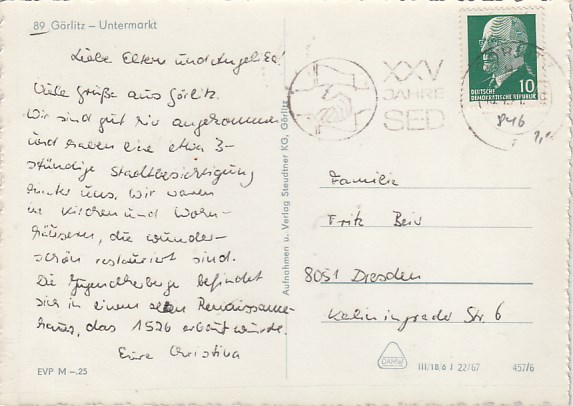 89 Görlitz – Untermarkt
Liebe Eltern und Angelika!
Viele Grüße aus Görlitz.
Wir sind gut hier angekommen
und haben eine etwa 3-
stündige Stadtbesichtigung
hinter uns. Wir waren
in Kirchen und Wohn-
häusern, die wunder-
schön restauriert sind.
Die Jugendherberge befindet
sich in einem alten Renaissance-
haus, das 1526 erbaut wurde.
Eure Christina
EVP M –.25
Aufnahmen u. Verlag Steudtner KG, Görlitz
XXV
JAHRE
SED
10
DEUTSCHE
DEMOKRATISCHE REPUBLIK
846
Familie
Fritz
8051 Dresden
Kaliningrader Str. 6
DAMW
III/18/6 J 22/67 457/6